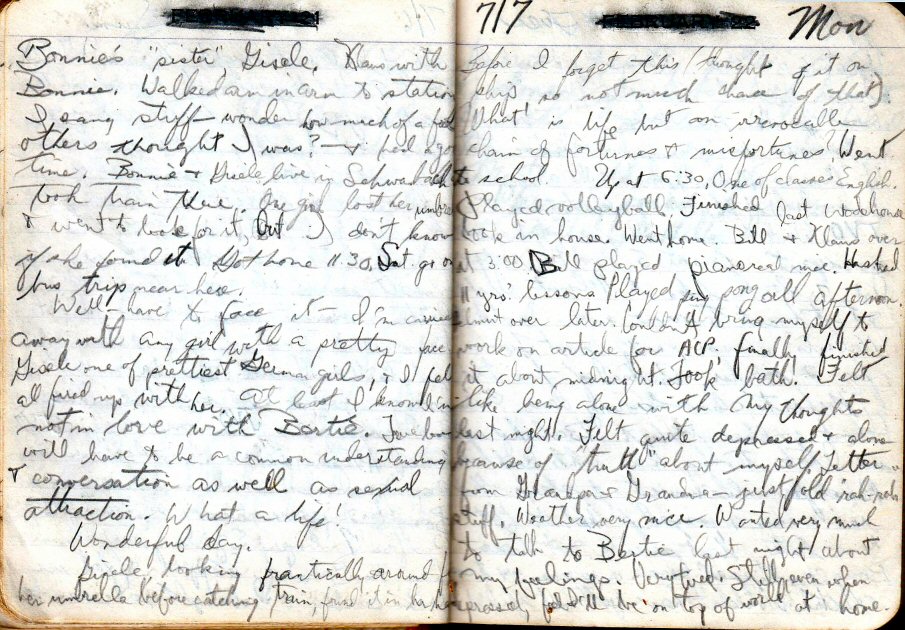 Bonnie's "sister", Gisele. Klaus with
Bonnie. Walked arm in arm to station
I sang, stuff - wonder how much of a fool
others thought I was? - & had a good
time. Bonnie & Gisele live in Schwabach &
took train there. One girl lost her umbrella
& went to look for it, but I don't know
if she found it. Got home 11:30. Sat. go on
bus trip near here.
Well - have to face it - I'm carried
away with any girl with a pretty face
Gisele one of prettiest German girls, & I felt
all fired up with her. At least I know I'm
not in love with Bertie. True love
will have to be a common understanding
& conversation as well as sexual
attraction. What a life!
Wonderful day.
Gisele looking frantically around for
her umbrella before catching train, found it in her
7/7 Mon
Before I forget this (thought of it on
ship so not much chance of that):
"What is life but an irrevocable
chain of fortunes & misfortunes?" Went
to school. Up at 6:30, One of classes English.
Played volleyball. Finished last Wodehouse
book in house. Went home. Bill & Klaus over
at 3:00 Bill played piano real nice. Has had
11 yrs' lessons Played ping pong all afternoon.
over later. Couldn't bring myself to
work on article for ACP, finally finished
it about midnight. Took bath. Felt
like being alone with my thoughts
last night. Felt quite depressed & alone
because of "truth" about myself. Letter
from Grandpa & Grandma - just old rah-rah
stuff. Weather very nice. Wanted very much
to talk to Bertie last night about
my feelings. Very tired. Still, even when
depressed, feel I'll be on top of world at home.